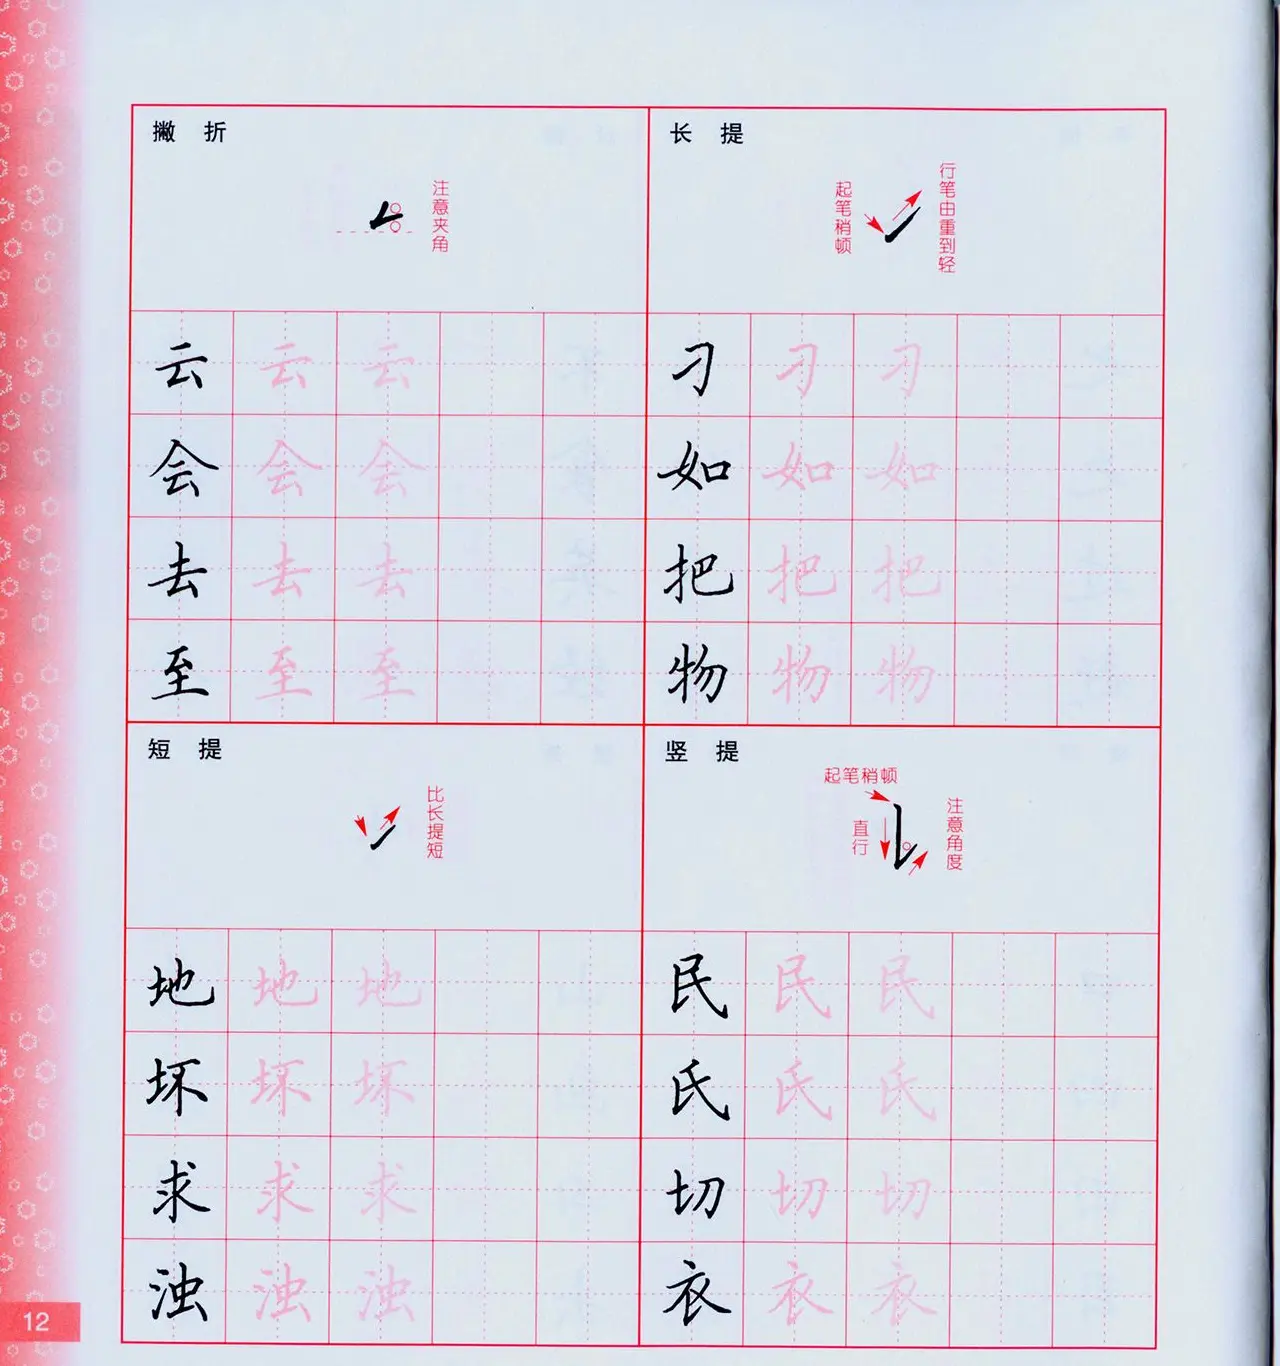 撇 折
注意夹角
云 云 云
会 会 会
去 去 去
至 至 至
长 提
起笔稍顿
行笔由重到轻
刁 刁 刁
如 如 如
把 把 把
物 物 物
短 提
比长提短
地 地 地
坏 坏 坏
求 求 求
浊 浊 浊
竖 提
起笔稍顿
直行
注意角度
民 民 民
氏 氏 氏
切 切 切
衣 衣 衣
12